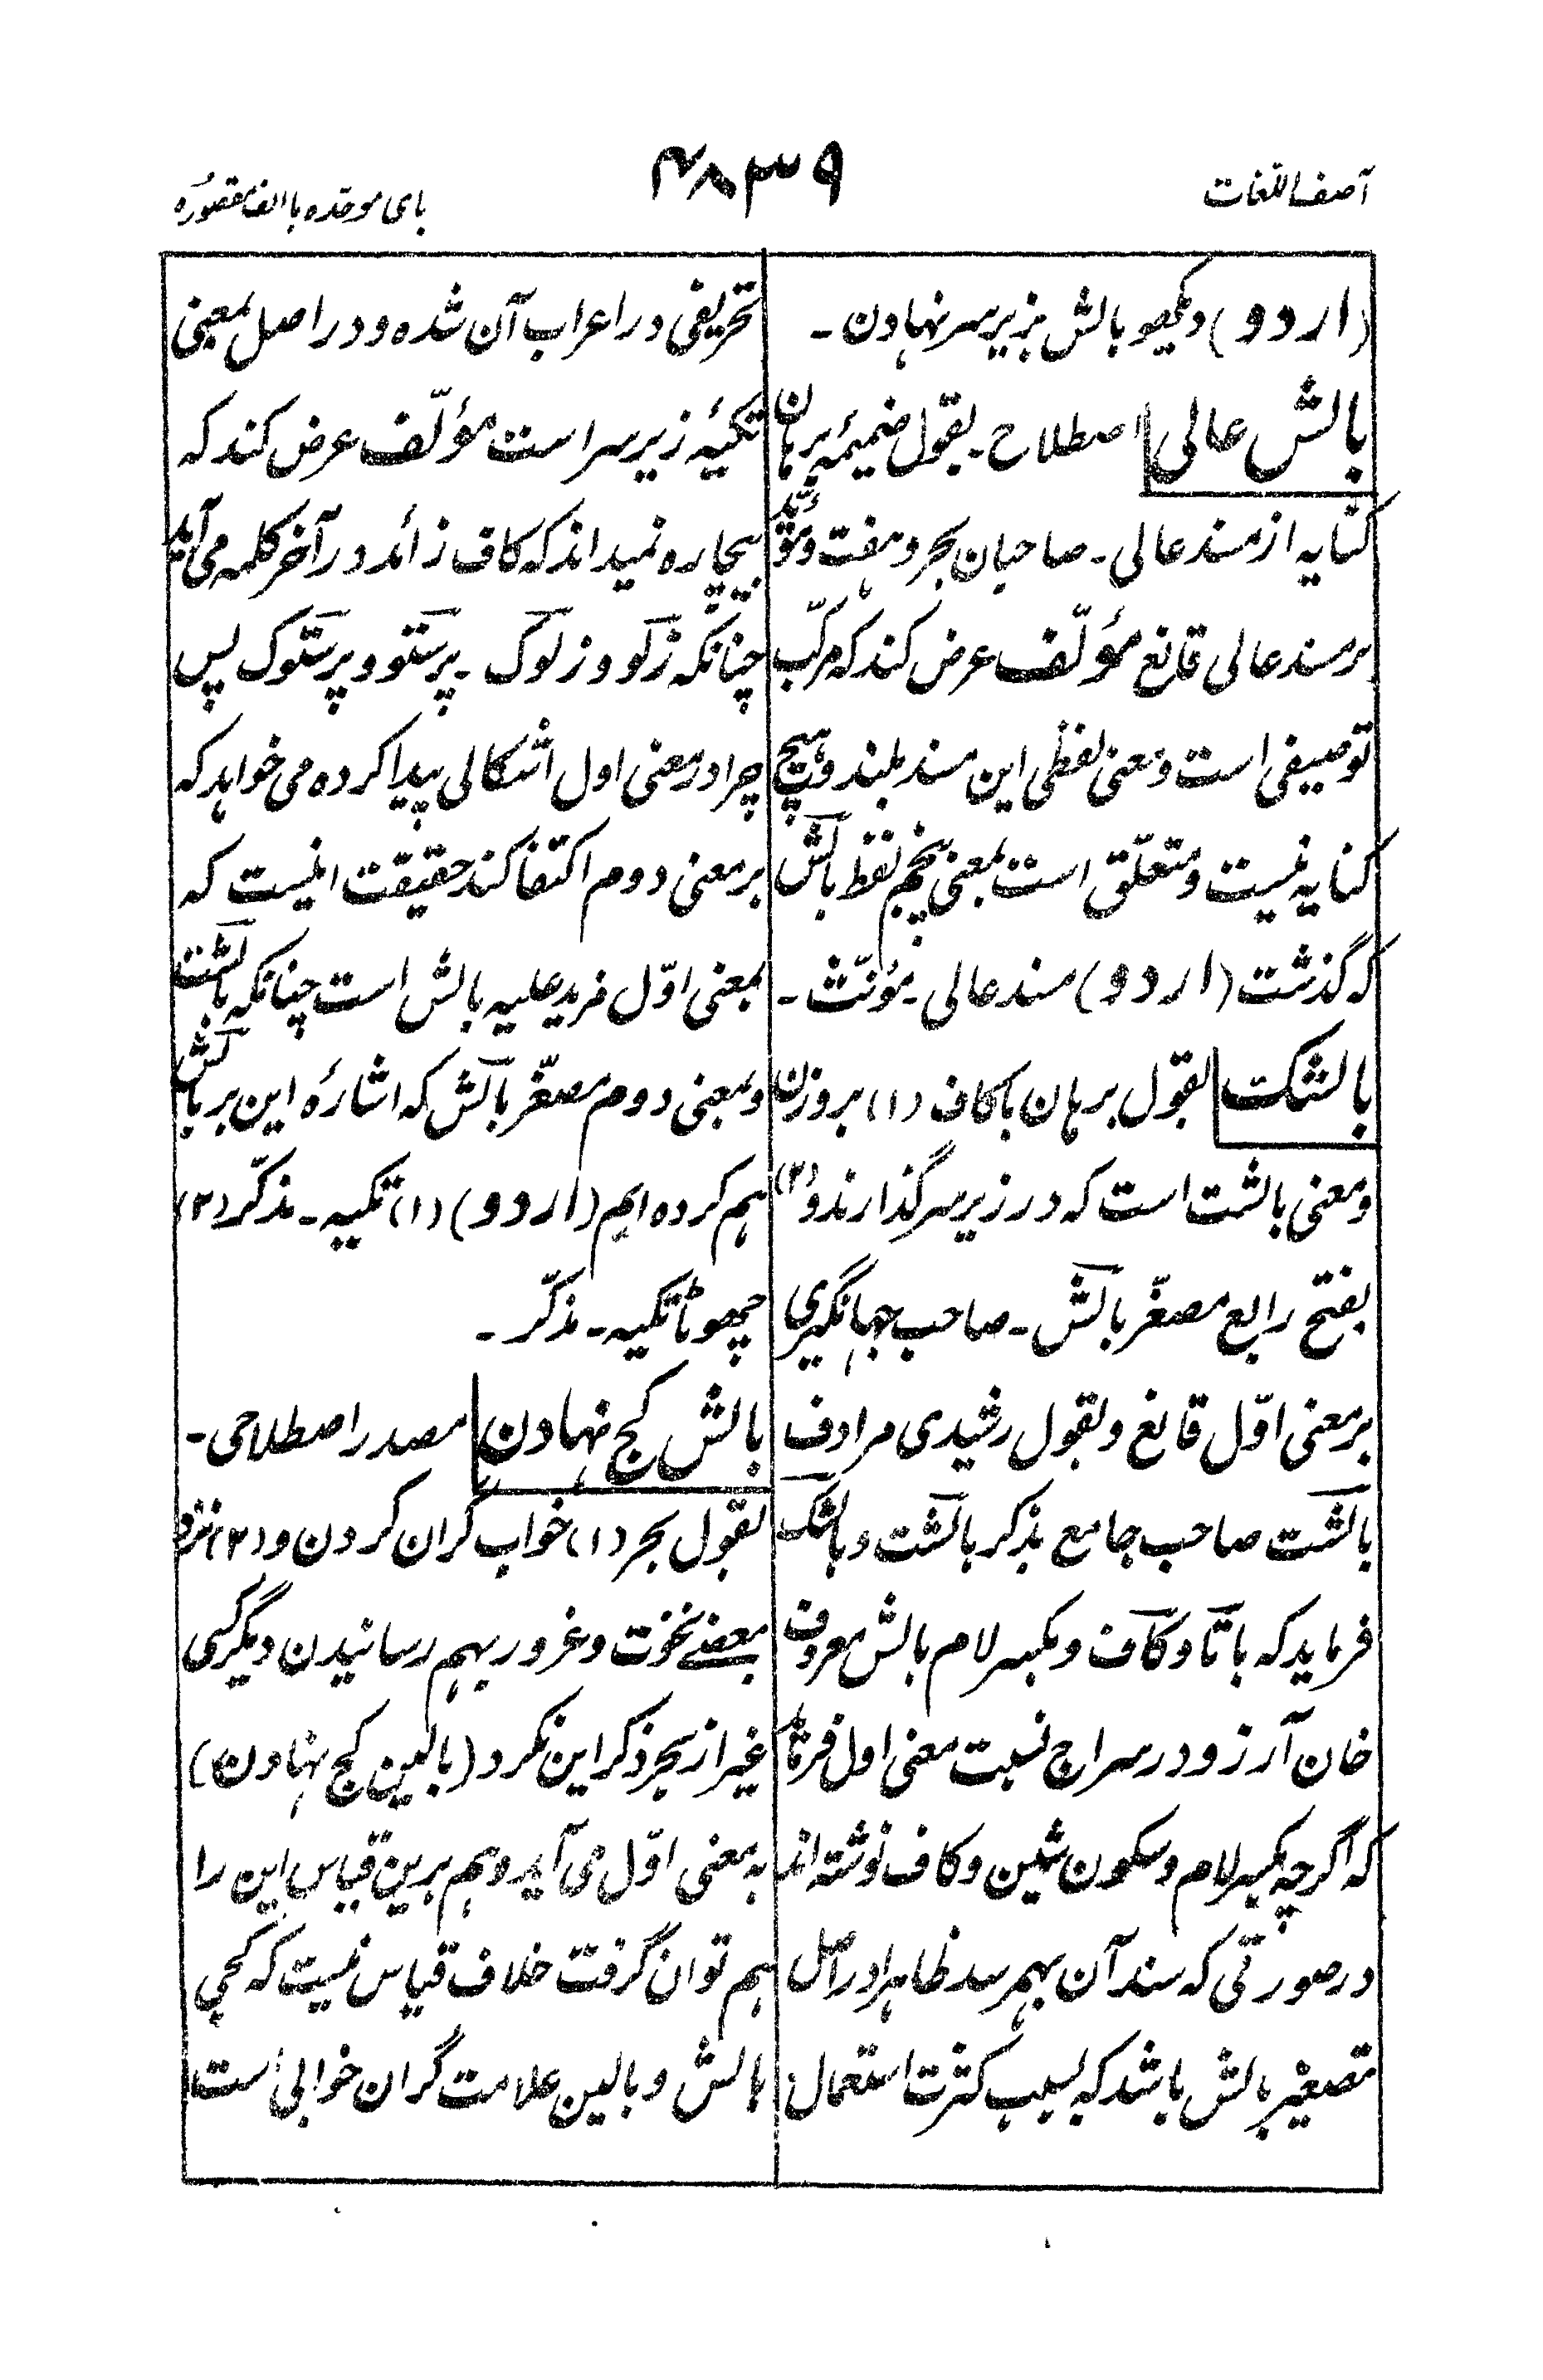 آصف اللّغات
۴۸۳۹
بای موحّده با الف مقصوره
(اردو) دیکھو بالش بزیر سر نہادن۔
بالش عالی اصطلاح۔ بقول ضمیمۂ برہان
کنایہ از مسند عالی۔ صاحبان بحر و ہفت و مؤیّد
بر مسند عالی قانع مؤلّف عرض کند کہ مرکّب
توصیفی است و معنی لفظی این مسند بلند و ہیچ
کنایہ نیست و متعلّق است بمعنی پنجم لفظ بالش
کہ گذشت (اردو) مسند عالی۔ مؤنّث۔
بالشک بقول برہان با کاف (۱) بروزن
و معنی بالشت است کہ در زیر سر گذارند و (۲)
بفتح رابع مصغّر بالش۔ صاحب جہانگیری
بر معنی اوّل قانع و بقول رشیدی مرادف
بالشت صاحب جامع بذکر بالشت و بالشک
فرماید کہ با تا و کاف و بکسر لام بالش معروف
خان آرزو در سراج نسبت معنی اول فرماید
کہ اگرچہ بکسر لام و سکون شین و کاف نوشتہ اند
در صورتی کہ سند آن بہم رسد ظاہرا در اصل
تصغیر بالش باشد کہ بسبب کثرت استعمال
تحریفی در اعراب آن شدہ و در اصل بمعنی
تکیۂ زیر سر است مؤلّف عرض کند کہ
بیچارہ نمیداند کہ کاف زائد در آخر کلمہ می آید
چنانکہ زلو و زلوک۔ پرستو و پرستوک پس
چرا در معنی اول اشکالی پیدا کردہ می خواہد کہ
بر معنی دوم اکتفا کند حقیقت اینست کہ
بمعنی اوّل مزید علیہ بالش است چنانکہ بالشت
و بمعنی دوم مصغّر بالش کہ اشارۂ این بر بالش
ہم کردہ ایم (اردو) (۱) تکیہ۔ مذکّر (۲)
چھوٹا تکیہ۔ مذکّر۔
بالش کج نہادن مصدر اصطلاحی۔
بقول بحر (۱) خواب گران کردن و (۲) نزد
بعضے نخوت و غرور بہم رسانیدن دیگر کسی
غیر از بحر ذکر این نکرد (بالین کج نہادن)
بہ معنی اوّل می آید و ہم برین قیاس این را
ہم توان گرفت خلاف قیاس نیست کہ کجی
بالش و بالین علامت گران خوابی است